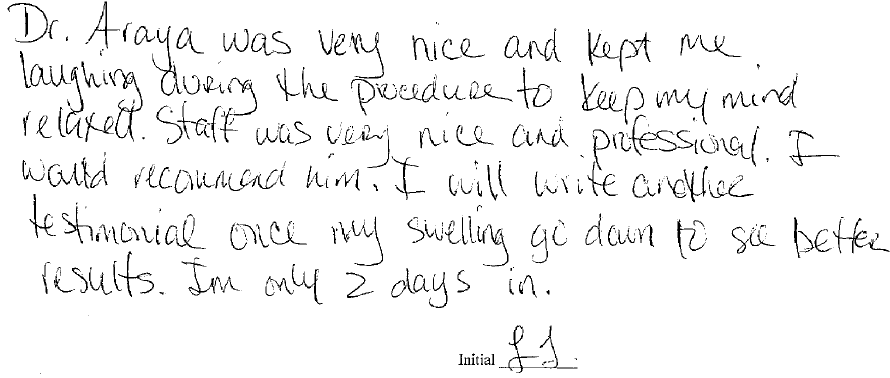 Dr. Araya was very nice and kept me
laughing during the procedure to keep my mind
relaxed. Staff was very nice and professional. I
would recommend him. I will write another
testimonial once my swelling go down to see better
results. Im only 2 days in.
Initial